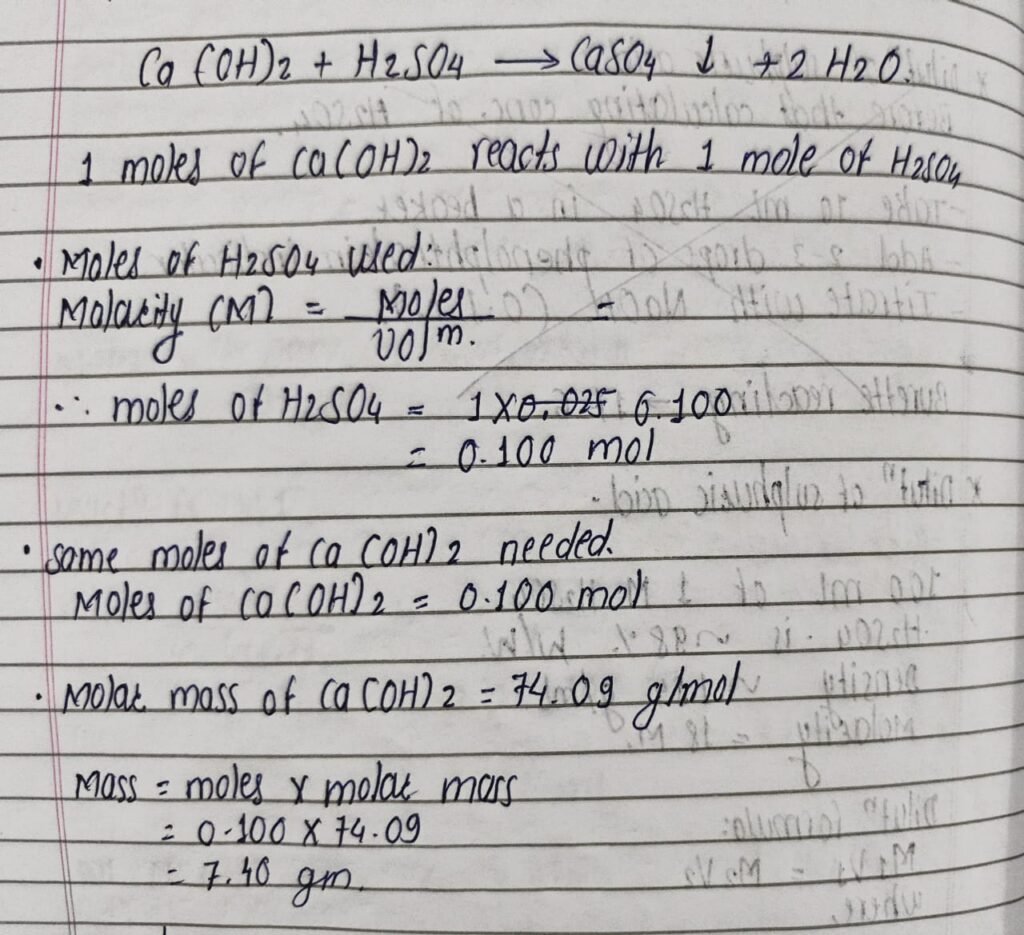 Ca(OH)2 + H2SO4 → CaSO4 ↓ + 2 H2O.
1 moles of Ca(OH)2 reacts with 1 mole of H2SO4
• Moles of H2SO4 used:
Molarity (M) = Moles / Volm. =
∴ moles of H2SO4 = 1 X 0.025 0.100
= 0.100 mol
• same moles of Ca(OH)2 needed.
Moles of Ca(OH)2 = 0.100 mol
• Molar mass of Ca(OH)2 = 74.09 g/mol
Mass = moles x molar mass
= 0.100 X 74.09
= 7.40 gm.